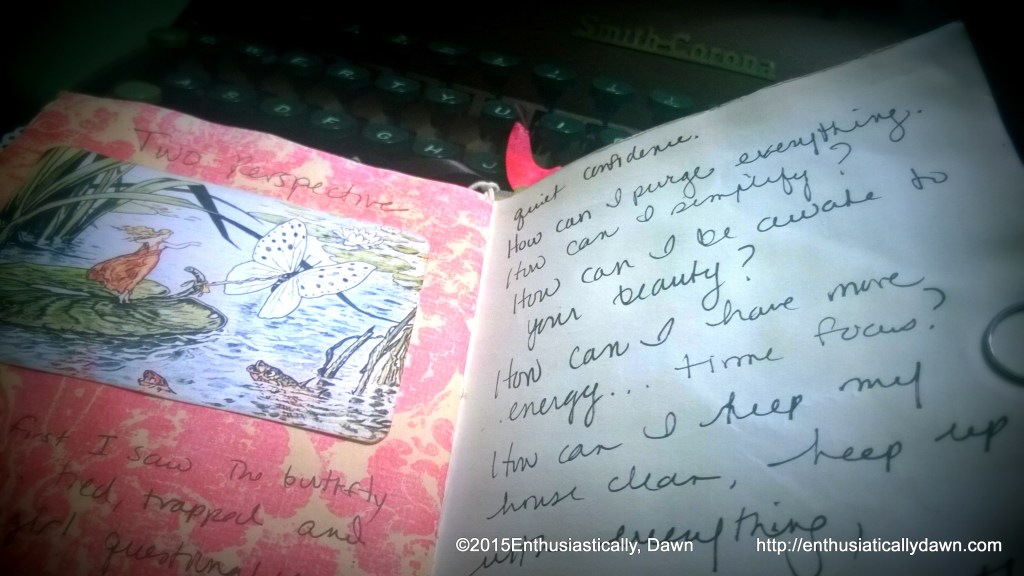 Smith-Corona
Two Perspective
First I saw the butterfly
tied, trapped and
girl
quiet confidence.
How can I purge everything.
How can I simplify?
How can I be awake to
your beauty?
How can I have more
energy... time focus?
How can I keep my
house clean, keep up
with everything,
©2015Enthusiastically, Dawn
http://enthusiaticallydawn.com